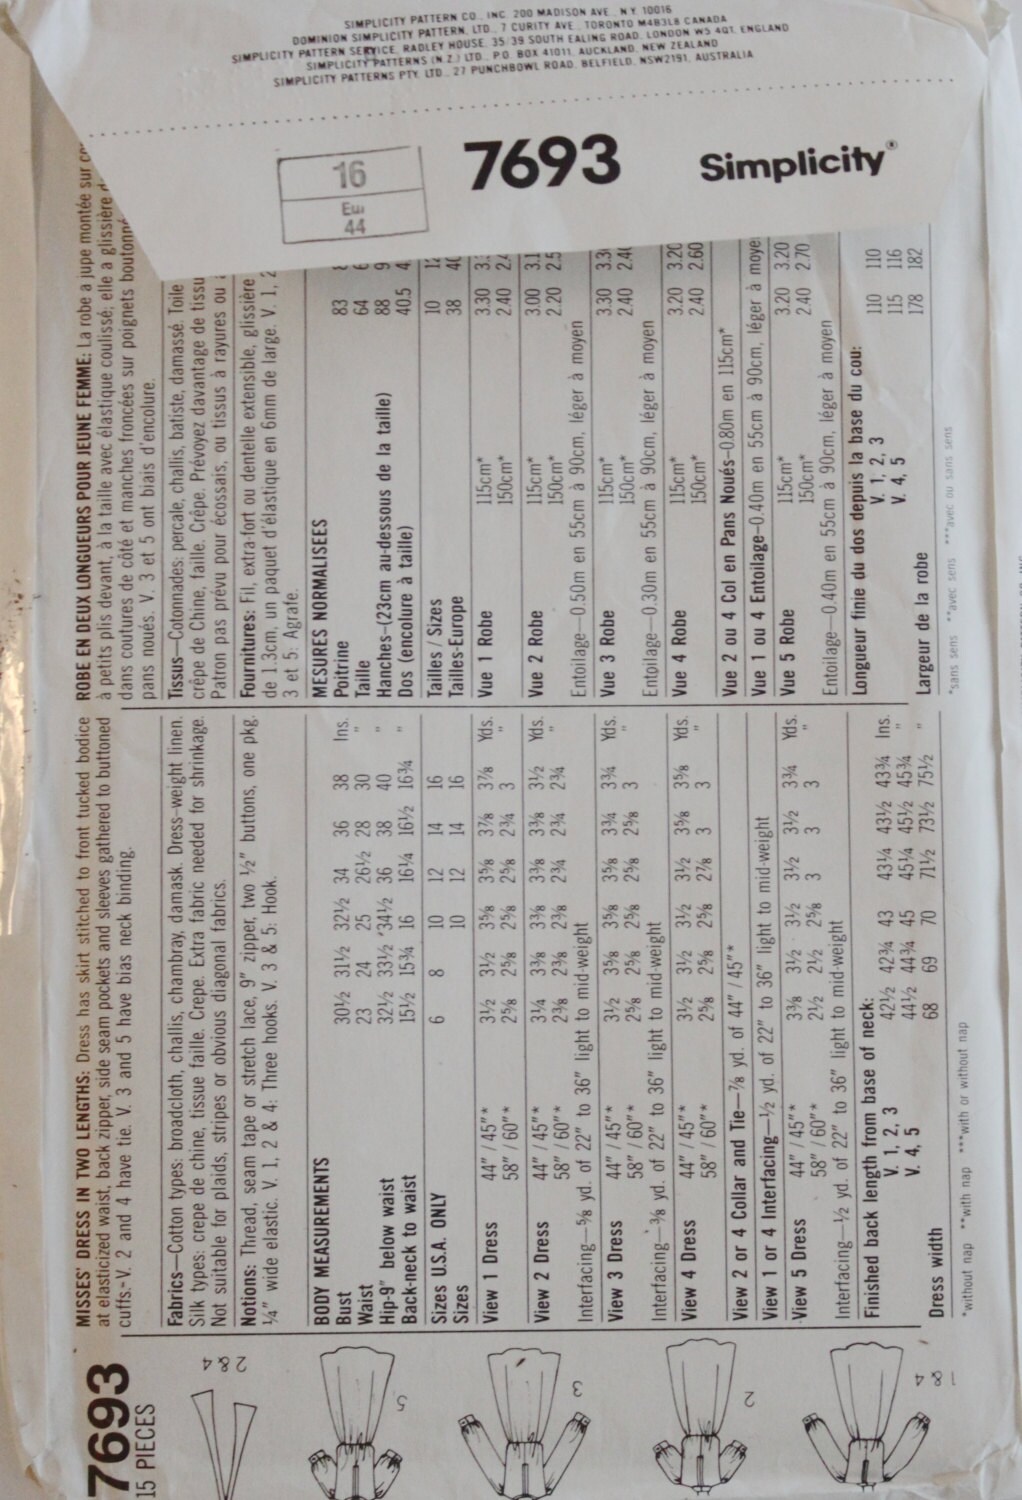 SIMPLICITY PATTERN CO., INC. 200 MADISON AVE., N.Y. 10016
DOMINION SIMPLICITY PATTERN, LTD., 7 CURITY AVE., TORONTO M4B3L8 CANADA
SIMPLICITY PATTERN SERVICE, RADLEY HOUSE, 35/39 SOUTH EALING ROAD, LONDON W5 4QT, ENGLAND
SIMPLICITY PATTERNS (N.Z.) LTD., P.O. BOX 41011, AUCKLAND, NEW ZEALAND
SIMPLICITY PATTERNS PTY. LTD., 27 PUNCHBOWL ROAD, BELFIELD, NSW2191, AUSTRALIA
16
Eur
44
7693
Simplicity®
7693
15 PIECES
2 & 4
5
3
2
1 & 4
MISSES' DRESS IN TWO LENGTHS: Dress has skirt stitched to front tucked bodice
at elasticized waist, back zipper, side seam pockets and sleeves gathered to buttoned
cuffs. V. 2 and 4 have tie. V. 3 and 5 have bias neck binding.
Fabrics—Cotton types: broadcloth, challis, chambray, damask. Dress-weight linen.
Silk types: crepe de chine, tissue faille. Crepe. Extra fabric needed for shrinkage.
Not suitable for plaids, stripes or obvious diagonal fabrics.
Notions: Thread, seam tape or stretch lace, 9" zipper, two ½" buttons, one pkg.
¼" wide elastic. V. 1, 2 & 4: Three hooks. V. 3 & 5: Hook.
BODY MEASUREMENTS
Bust 30½ 31½ 32½ 34 36 38 Ins.
Waist 23 24 25 26½ 28 30 "
Hip-9" below waist 32½ 33½ 34½ 36 38 40 "
Back-neck to waist 15½ 15¾ 16 16¼ 16½ 16¾ "
Sizes U.S.A. ONLY 6 8 10 12 14 16
Sizes 10 12 14 16
View 1 Dress 44"/45"* 3½ 3½ 3⅝ 3⅝ 3⅞ 3⅞ Yds.
58"/60"* 2⅝ 2⅝ 2⅝ 2⅝ 2¾ 3 "
View 2 Dress 44"/45"* 3¼ 3⅜ 3⅜ 3⅜ 3⅜ 3½ Yds.
58"/60"* 2⅜ 2⅜ 2⅜ 2¾ 2¾ 2¾ "
Interfacing—⅝ yd. of 22" to 36" light to mid-weight
View 3 Dress 44"/45"* 3½ 3⅝ 3⅝ 3⅝ 3¾ 3¾ Yds.
58"/60"* 2⅝ 2⅝ 2⅝ 2⅝ 2⅝ 3 "
Interfacing—⅜ yd. of 22" to 36" light to mid-weight
View 4 Dress 44"/45"* 3½ 3½ 3½ 3½ 3⅝ 3⅝ Yds.
58"/60"* 2⅝ 2⅝ 2⅝ 2⅞ 3 3 "
View 2 or 4 Collar and Tie—⅞ yd. of 44"/45"*
View 1 or 4 Interfacing—½ yd. of 22" to 36" light to mid-weight
View 5 Dress 44"/45"* 3⅜ 3½ 3½ 3½ 3½ 3¾ Yds.
58"/60"* 2½ 2½ 2⅝ 3 3 3 "
Interfacing—½ yd. of 22" to 36" light to mid-weight
Finished back length from base of neck:
V. 1, 2, 3 42½ 42¾ 43 43¼ 43½ 43¾ Ins.
V. 4, 5 44½ 44¾ 45 45¼ 45½ 45¾ "
Dress width 68 69 70 71½ 73½ 75½ "
*without nap **with nap ***with or without nap
ROBE EN DEUX LONGUEURS POUR JEUNE FEMME: La robe a jupe montée sur
à petits plis devant, à la taille avec élastique coulissé; elle a glissière
dans coutures de côté et manches froncées sur poignets boutonné
pans noués. V. 3 et 5 ont biais d'encolure.
Tissus—Cotonnades: percale, challis, batiste, damassé. Toile
crêpe de Chine, faille. Crêpe. Prévoyez davantage de tissu
Patron pas prévu pour écossais, ou tissus à rayures ou
Fournitures: Fil, extra-fort ou dentelle extensible, glissière
de 1.3cm, un paquet d'élastique en 6mm de large. V. 1, 2
3 et 5: Agrafe.
MESURES NORMALISEES
Poitrine 83
Taille 64
Hanches-(23cm au-dessous de la taille) 88
Dos (encolure à taille) 40.5
Tailles / Sizes 10
Tailles-Europe 38
Vue 1 Robe 115cm* 3.30
150cm* 2.40
Vue 2 Robe 115cm* 3.00
150cm* 2.20
Entoilage—0.50m en 55cm à 90cm, léger à moyen
Vue 3 Robe 115cm* 3.30
150cm* 2.40
Entoilage—0.30m en 55cm à 90cm, léger à moyen
Vue 4 Robe 115cm* 3.20 3.20
150cm* 2.40 2.60
Vue 2 ou 4 Col en Pans Noués-0.80m en 115cm*
Vue 1 ou 4 Entoilage-0.40m en 55cm à 90cm, léger à moye
Vue 5 Robe 115cm* 3.20 3.20
150cm* 2.40 2.70
Entoilage—0.40m en 55cm à 90cm, léger à moyen
Longueur finie du dos depuis la base du cou:
V. 1, 2, 3 110 110
V. 4, 5 115 116
Largeur de la robe 178 182
*sans sens **avec sens ***avec ou sans sens